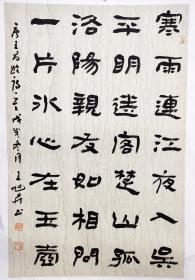 寒雨連江夜入吳
平明送客楚山孤
洛陽親友如相問
一片冰心在玉壺
唐王昌龄詩 戊戌冬月王旭书